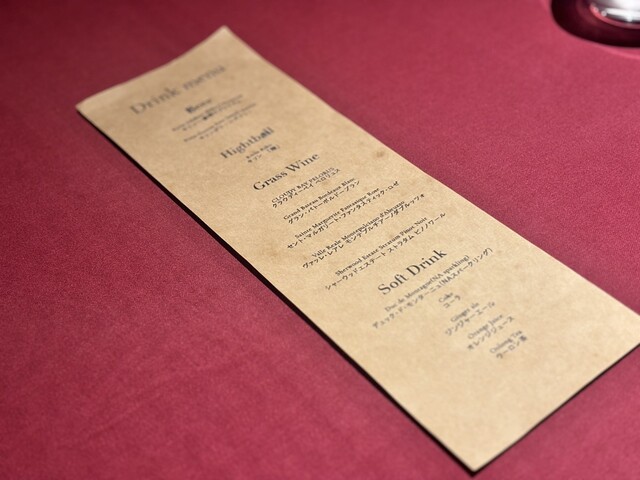 Drink menu
Beer
Hightball
Grass Wine
CLOUDY BAY PELORUS
クラウディーベイ ペロリュス
Grand Bateau Bordeaux Blanc
グラン・バトー・ボルドーブラン
Sainte Marguerite Fantastique Rose
セント・マルガリート・ファンタスティック・ロゼ
Valle Reale Montepulciano d'Abruzzo
ヴァッレ・レアレ モンテプルチアーノダブルッツォ
Sherwood Estate Stratum Pinot Noir
シャーウッドエステート ストラタム ピノノワール
Soft Drink
Duc de Montagne(NA sparkling)
デュック・ド・モンターニュ(NAスパークリング)
Coke
コーラ
Ginger ale
ジンジャーエール
Orange Juice
オレンジジュース
Oolong Tea
ウーロン茶